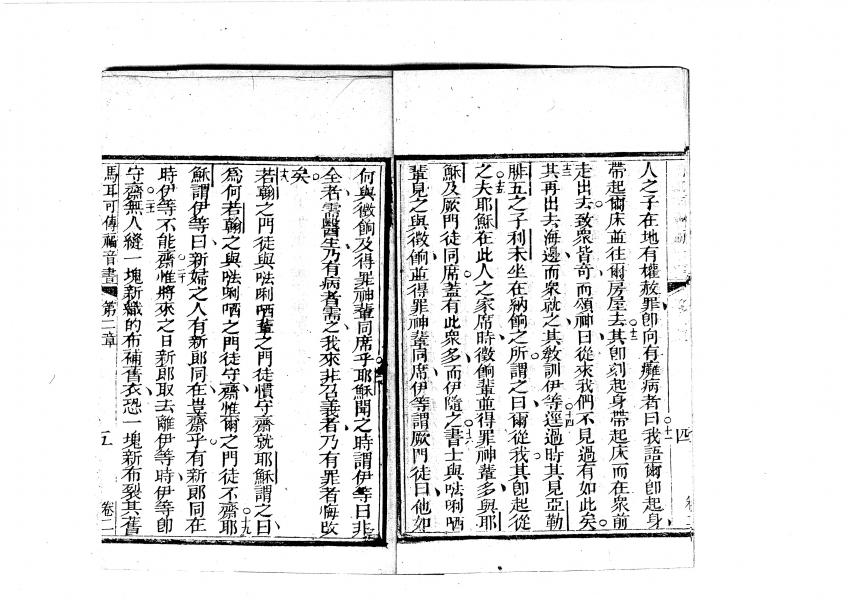 人之子在地有權赦罪卽向有癱病者曰○十一我語爾卽起身
帶起爾床並往爾房屋去○十二其卽刻起身帶起床而在衆前
走出去致衆皆奇而頌神曰從來我們不見過有如此矣○
十三其再出去海邊而衆就之其敎訓伊等○十四逕過時其見亞勒
腓五之子利未坐在納餉之所謂之曰爾從我其卽起從
之○十五夫耶穌在此人之家席時徵餉輩並得罪神輩多與耶
穌及厥門徒同席蓋有此衆多而伊隨之○十六書士與𠵽唎哂
輩見之與徵餉並得罪神輩同席伊等謂厥門徒曰他如
四
何與徵餉及得罪神輩同席乎○十七耶穌聞之時謂伊等曰非
全者需醫生乃有病者需之我來非召義者乃有罪者悔改
矣○
十八若翰之門徒與𠵽唎哂輩之門徒慣守齋就耶穌謂之曰
爲何若翰之與𠵽唎哂之門徒守齋惟爾之門徒不齋耶○十九
穌謂伊等曰新婦之人有新郎同在豈齋乎有新郎同在
時伊等不能齋○二十惟將來之日新郎取去離伊等時伊等卽
守齋○二一無人縫一塊新織的布補舊衣恐一塊新布裂其舊
馬耳可傳福音書 第二章 五 卷二